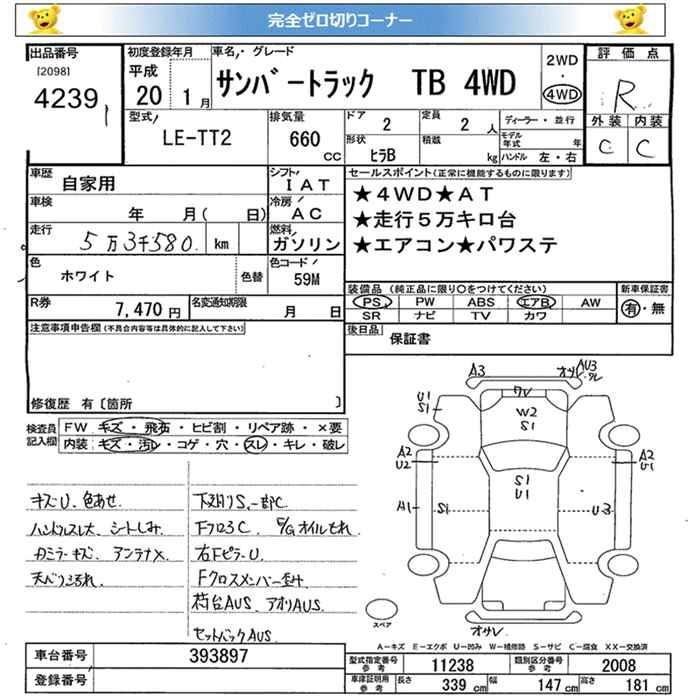 完全ゼロ切りコーナー
出品番号 初度登録年月 車名・グレード 2WD・4WD 評価点
[2098]
4239 平成 20 1月 サンバートラック TB 4WD R
型式 排気量 ドア 定員 ディーラー・並行 外装 内装
LE-TT2 660 CC 2 2 人 モデル年式 年 C C
形状 積載
ヒラB kg ハンドル 左・右
車歴 自家用 シフト IAT セールスポイント(正常に機能するものに限ります)
車検 年 月( 日) 冷房 AC ★4WD★AT
走行 5万3千580 km 燃料 ガソリン ★走行5万キロ台
色 ホワイト 色替 色コード 59M ★エアコン★パワステ
R券 7,470円 名変通知期限 月 日 装備品(純正品に限り○をつけてください) 新車保証書
PS PW ABS エアB AW 有・無
SR ナビ TV カワ
注意事項申告欄(不具合内容等は具体的に記入して下さい) 後日品 保証書
修復歴 有〔箇所 〕
検査員記入欄 FW キズ・飛石・ヒビ割・リペア跡・×要
内装 キズ・汚レ・コゲ・穴・スレ・キレ・破レ
キズU、色あせ 下廻りS、一部C
ハンドルスレ大 シートしみ Fフロアc P/Gオイルもれ
カミラーキズ アンテナX 右FピラーU
天ベリ汚れ Fクロスメンバー歪み
荷台AUS、アオリAUS
セットバックAUS
A3 オサレ AU3
ワレ
U1 S1 W2 S1
A2 U2 S1 U1 A2 U1
A1 S1 U3
オサレ
スペア
A−キズ E−エクボ U−凹み W−補修跡 S−サビ C−腐食 XX−交換済
車台番号 393897 型式指定番号 参考 11238 類別区分番号 参考 2008
登録番号 車庫証明用 参考 長さ 339 cm 幅 147 cm 高さ 181 cm